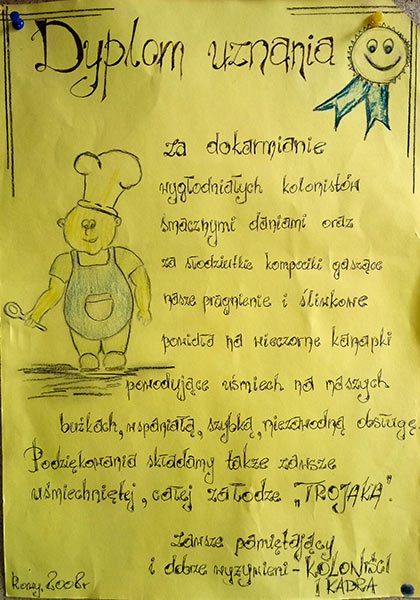 Dyplom uznania
za dokarmianie
wygłodniałych kolonistów
smacznymi daniami oraz
za słodziutkie kompociki gaszące
nasze pragnienie i śliwkowe
powidła na wieczorne kanapki
powodujące uśmiech na naszych
buźkach, wspaniałą, szybką, niezawodną obsługę.
Podziękowania składamy także zawsze
uśmiechniętej, całej załodze „TROJAKA".
zawsze pamiętający
i dobrze wyżywieni - KOLONIŚCI
I KADRA
2008r